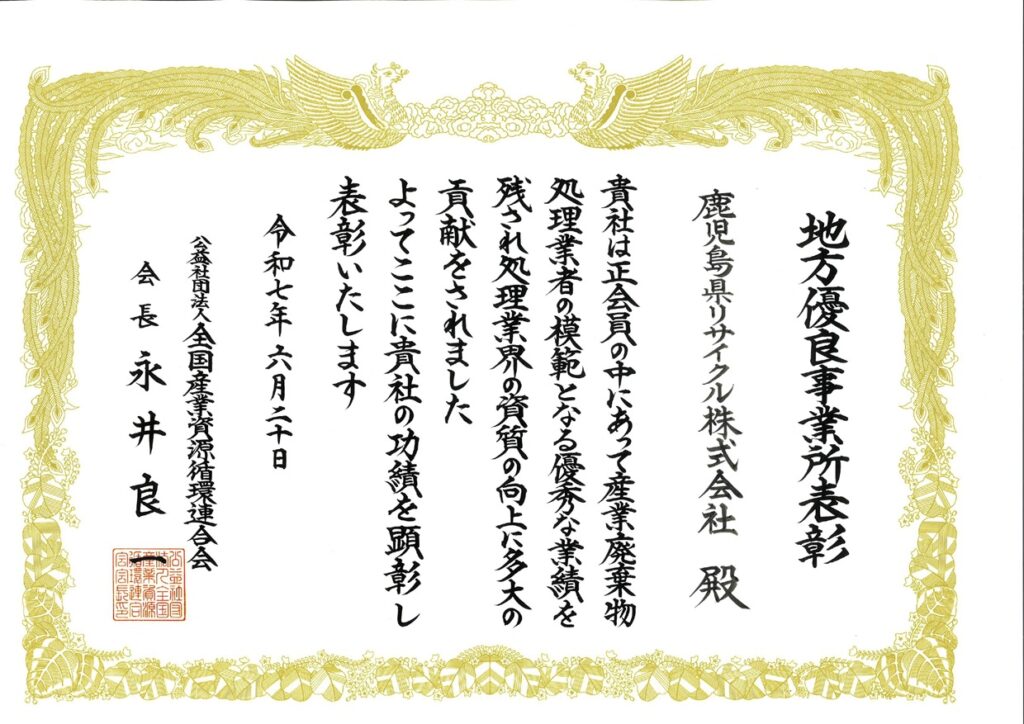 地方優良事業所表彰
鹿児島県リサイクル株式会社 殿
貴社は正会員の中にあって産業廃棄物
処理業者の模範となる優秀な業績を
残され処理業界の資質の向上に多大の
貢献をされました
よってここに貴社の功績を顕彰し
表彰いたします
令和七年 六月二十日
公益社団法人全国産業資源循環連合会
会長 永井良一